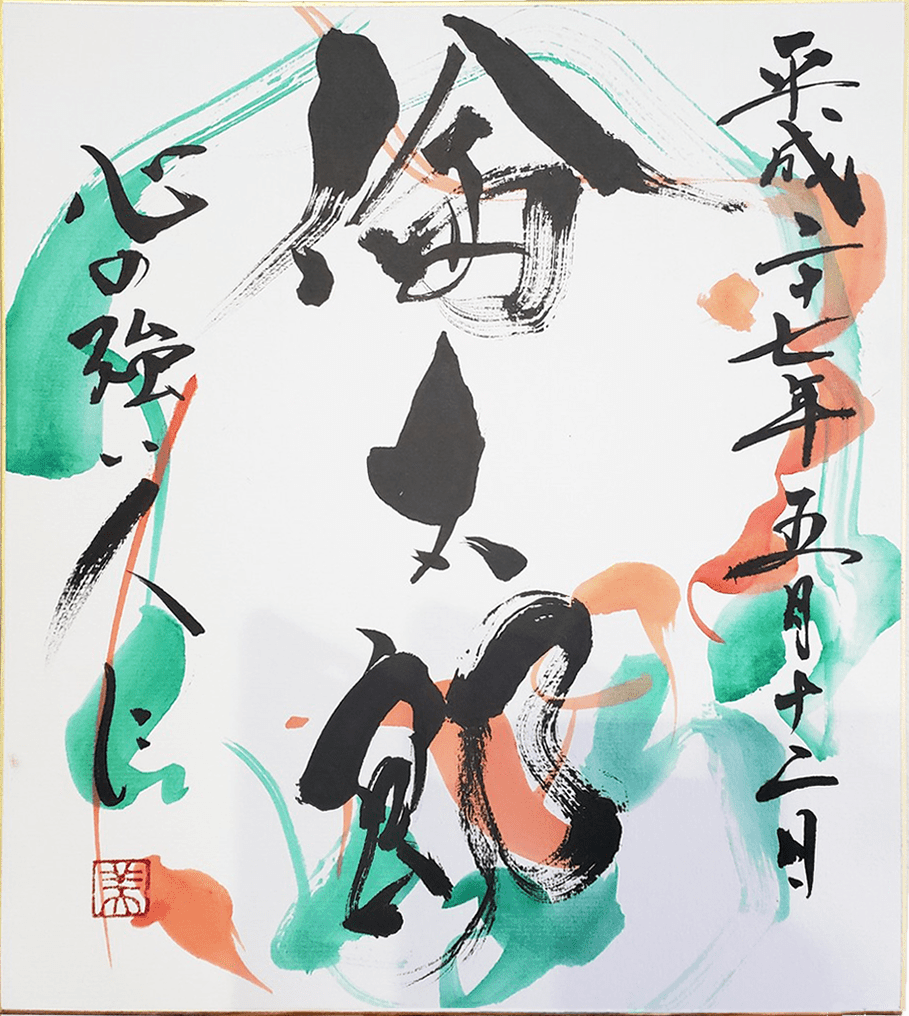 平成二十七年五月十二日
倫太郎
心の強い人に